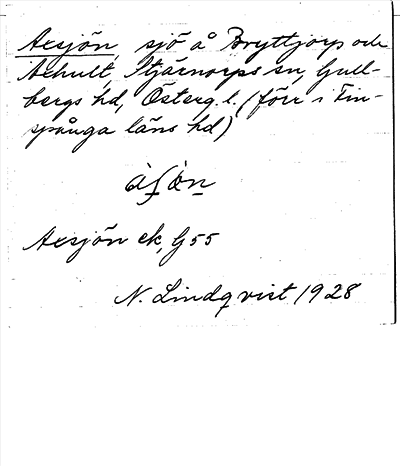 Axsjön, sjö å Bryttjorp och
Axhult, Stjärnorps sn, Gull-
bergs hd, Österg. l. (förr i Fin-
spånga läns hd)
Axsjön ek, G 55
N. Lindqvist 1928